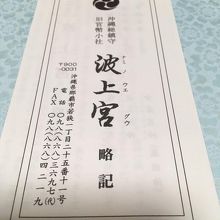 沖縄総鎮守
旧官幣小社
波上宮
ナミノウエグウ
略記
〒900
-0031
沖縄県那覇市若狭一丁目二十五番十一号
電話〇九八（八六八）三六九七（代）
FAX〇九八（八六八）四二一九